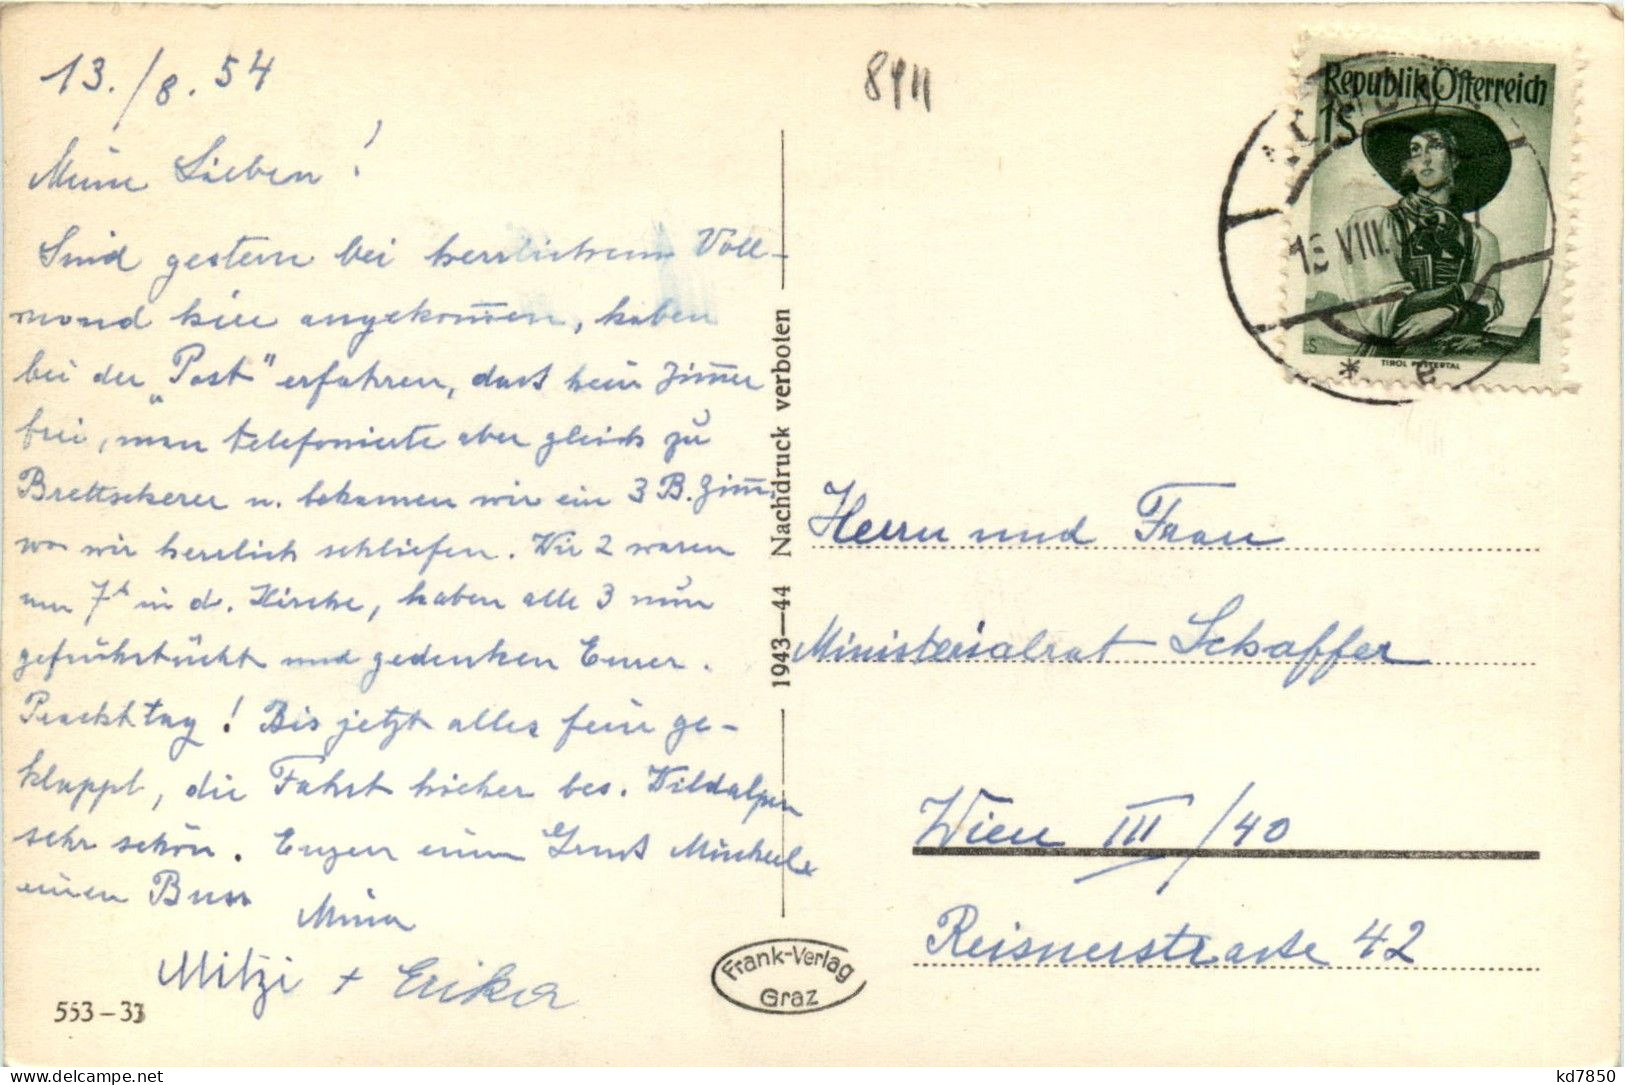 13./8.54
8911
Meine Lieben!
Sind gestern bei herrlichem Voll-
mond hier angekom̅en, haben
bei der „Post“ erfahren, dass kein Zim̅er
frei, man telefonierte aber gleich zu
Brettscherer u. bekamen wir ein 3 B. Zim̅.
wo wir herrlich schliefen. Wir 2 waren
um 7h in d. Kirche, haben alle 3 nun
gefrühstückt und gedenken Eurer.
Prachttag! Bis jetzt alles fein ge-
klappt, die Fahrt hieher bes. Wildalpen
sehr schön. Eugen einen Gruss
einen Buss
Mina
Mitzi + Erika
553-33
1943-44 Nachdruck verboten
Frank-Verlag
Graz
Republik Österreich
1S
VIII.
TIROL PUSTERTAL
Herrn und Frau
Ministerialrat Schaffer
Wien III/40
Reisnerstrasse 42
kd7850